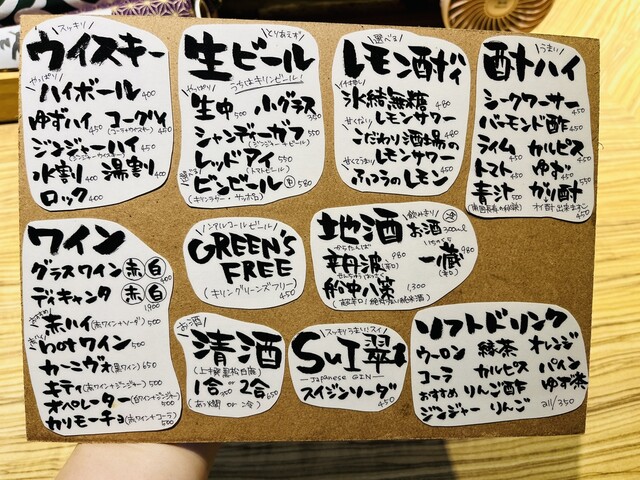 スッキリ
ウイスキー
やっぱり
ハイボール 400
ゆずハイ 450 コークハイ 450
(コーラ+ウイスキー)
ジンジャーハイ 450
(ジンジャー+ウイスキー)
水割 400 湯割 400
ロック 400
とりあえず
生ビール
うちはキリンビール!
やっぱり
生中 500 小グラス 350
シャンディーガフ 550
(ジンジャー+ビール)
レッドアイ 550
(トマト+ビール)
選べる
ビンビール 中 580
(キリンラガー・サッポロ)
選べる
レモン酎ハイ
甘くない
氷結無糖 480
レモンサワー
甘くない
こだわり酒場の 480
レモンサワー
甘くてうまい
ふつうのレモン 450
うまい
酎ハイ
シークワーサー 450
バーモンド酢 450
ライム 450 カルピス 450
トマト 450 ゆず 450
青汁 550 ガリ酎 450
ワイン
グラスワイン 赤 白 400
ディキャンタ 赤 白 1,900
赤ハイ(赤ワイン+ソーダ) 500
hotワイン 500
カーニヴォ(黒ワイン) 650
キティ(赤ワイン+ジンジャー) 500
オペレーター(白ワイン+ジンジャー) 500
カリモーチョ(赤ワイン+コーラ) 500
ノンアルコールビール
GREEN'S
FREE
(キリングリーンズフリー)
450
地酒
飲みきり 冷
お酒 300ml
からたんば
辛丹波 980
(辛口)
一蔵 980
(辛口)
船中八策 1,300
お酒
清酒
(上撰 黒松白鹿)
1合 350 or 2合 650
(あつ燗 or 冷)
スッキリうまいにスイ
SuI翠
—Japanese GIN—
スイジンソーダ
450
ソフトドリンク
ウーロン 緑茶 オレンジ
コーラ カルピス パイン
おすすめ りんご酢 ゆず茶
ジンジャー りんご all/350